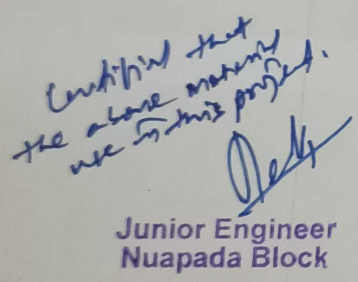 Certified that
the above material
use in this project.
Junior Engineer
Nuapada Block